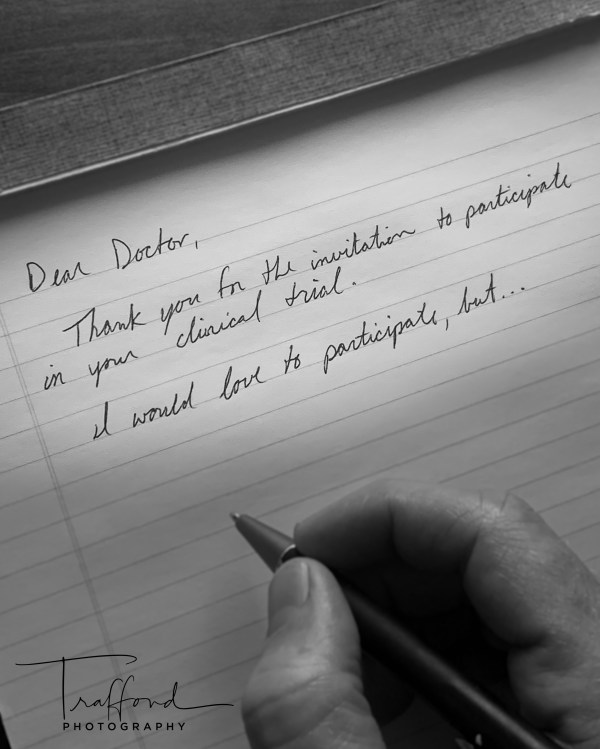 Dear Doctor,
Thank you for the invitation to participate
in your clinical trial.
I would love to participate, but...
Trafford
PHOTOGRAPHY